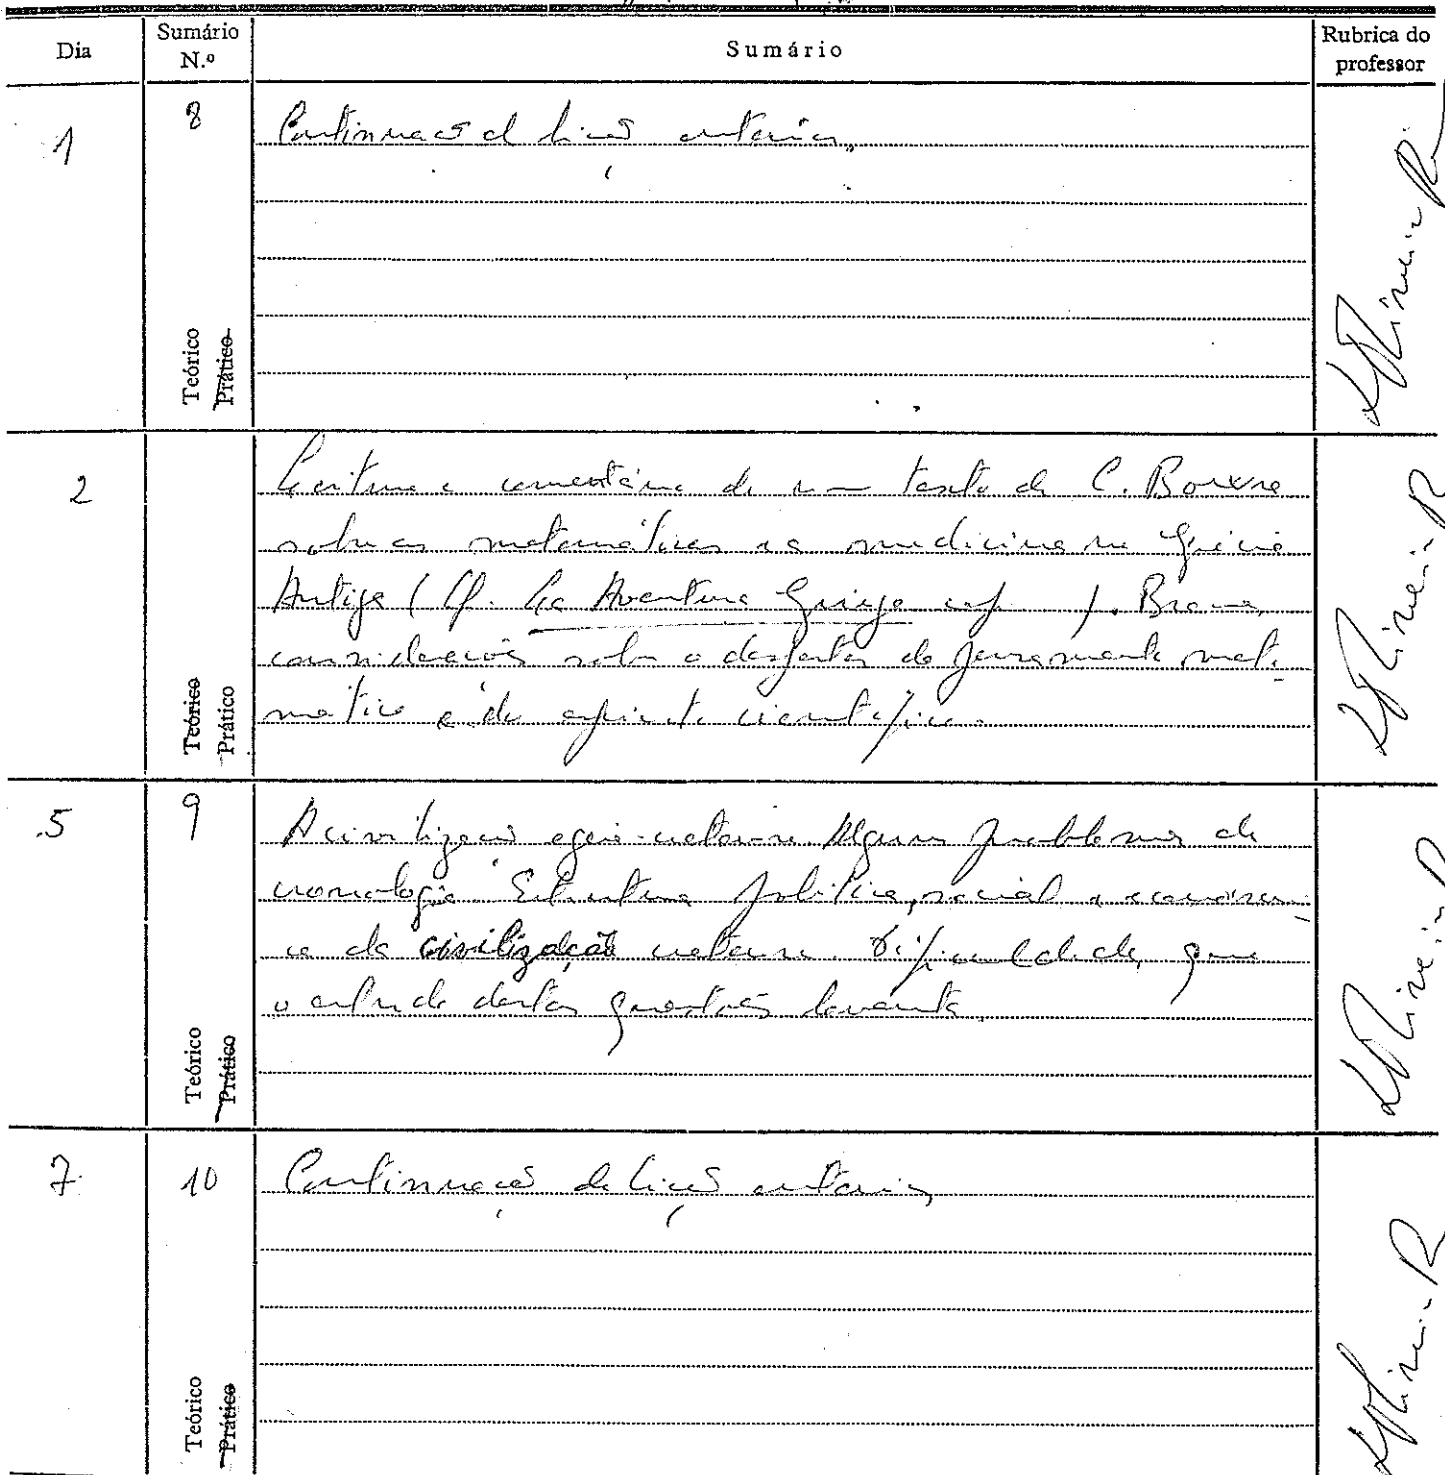 Dia
Sumário N.º
Sumário
Rubrica do professor
1
8
Continuação da lição anterior.
Teórico
Prático
2
Leitura e comentário de um texto de C. Bowra
sobre as matemáticas e a medicina na Grécia
Antiga (Cf. La Aventura Griega cap. ). Breves
considerações sobre o despertar do pensamento mate-
mático e do espírito científico.
Teórico
Prático
5
9
A civilização egeio-cretense. Alguns problemas de
cronologia. Estrutura política, social e económi-
ca da civilização cretense. Dificuldades que
o estudo destas questões levanta.
Teórico
Prático
7
10
Continuação da lição anterior
Teórico
Prático